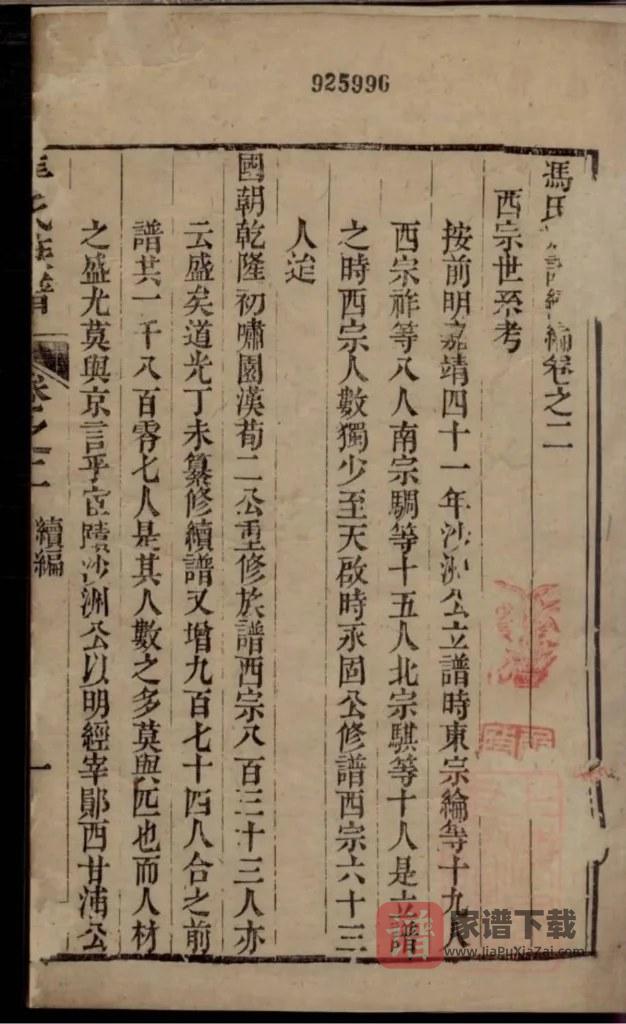 925996
馮氏續編卷之二
西宗世系考
按前明嘉靖四十一年沙洲公立譜時東宗綸等十九人
西宗祚等八人南宗騆等十五人北宗騏等十人是立譜
之時西宗人數獨少至天啟時永固公修譜西宗六十三
人迨
國朝乾隆初嘯園漢荀二公重修族譜西宗八百三十三人亦
云盛矣道光丁未纂修續譜又增九百七十四人合之前
譜共一千八百零七人是其人數之多莫與匹也而人材
之盛尤莫與京言乎宦蹟沙洲公以明經宰鄖西甘浦公
氏族譜
卷之二
續編
一
譜
家谱下载
www.JiaPuXiaZai.com